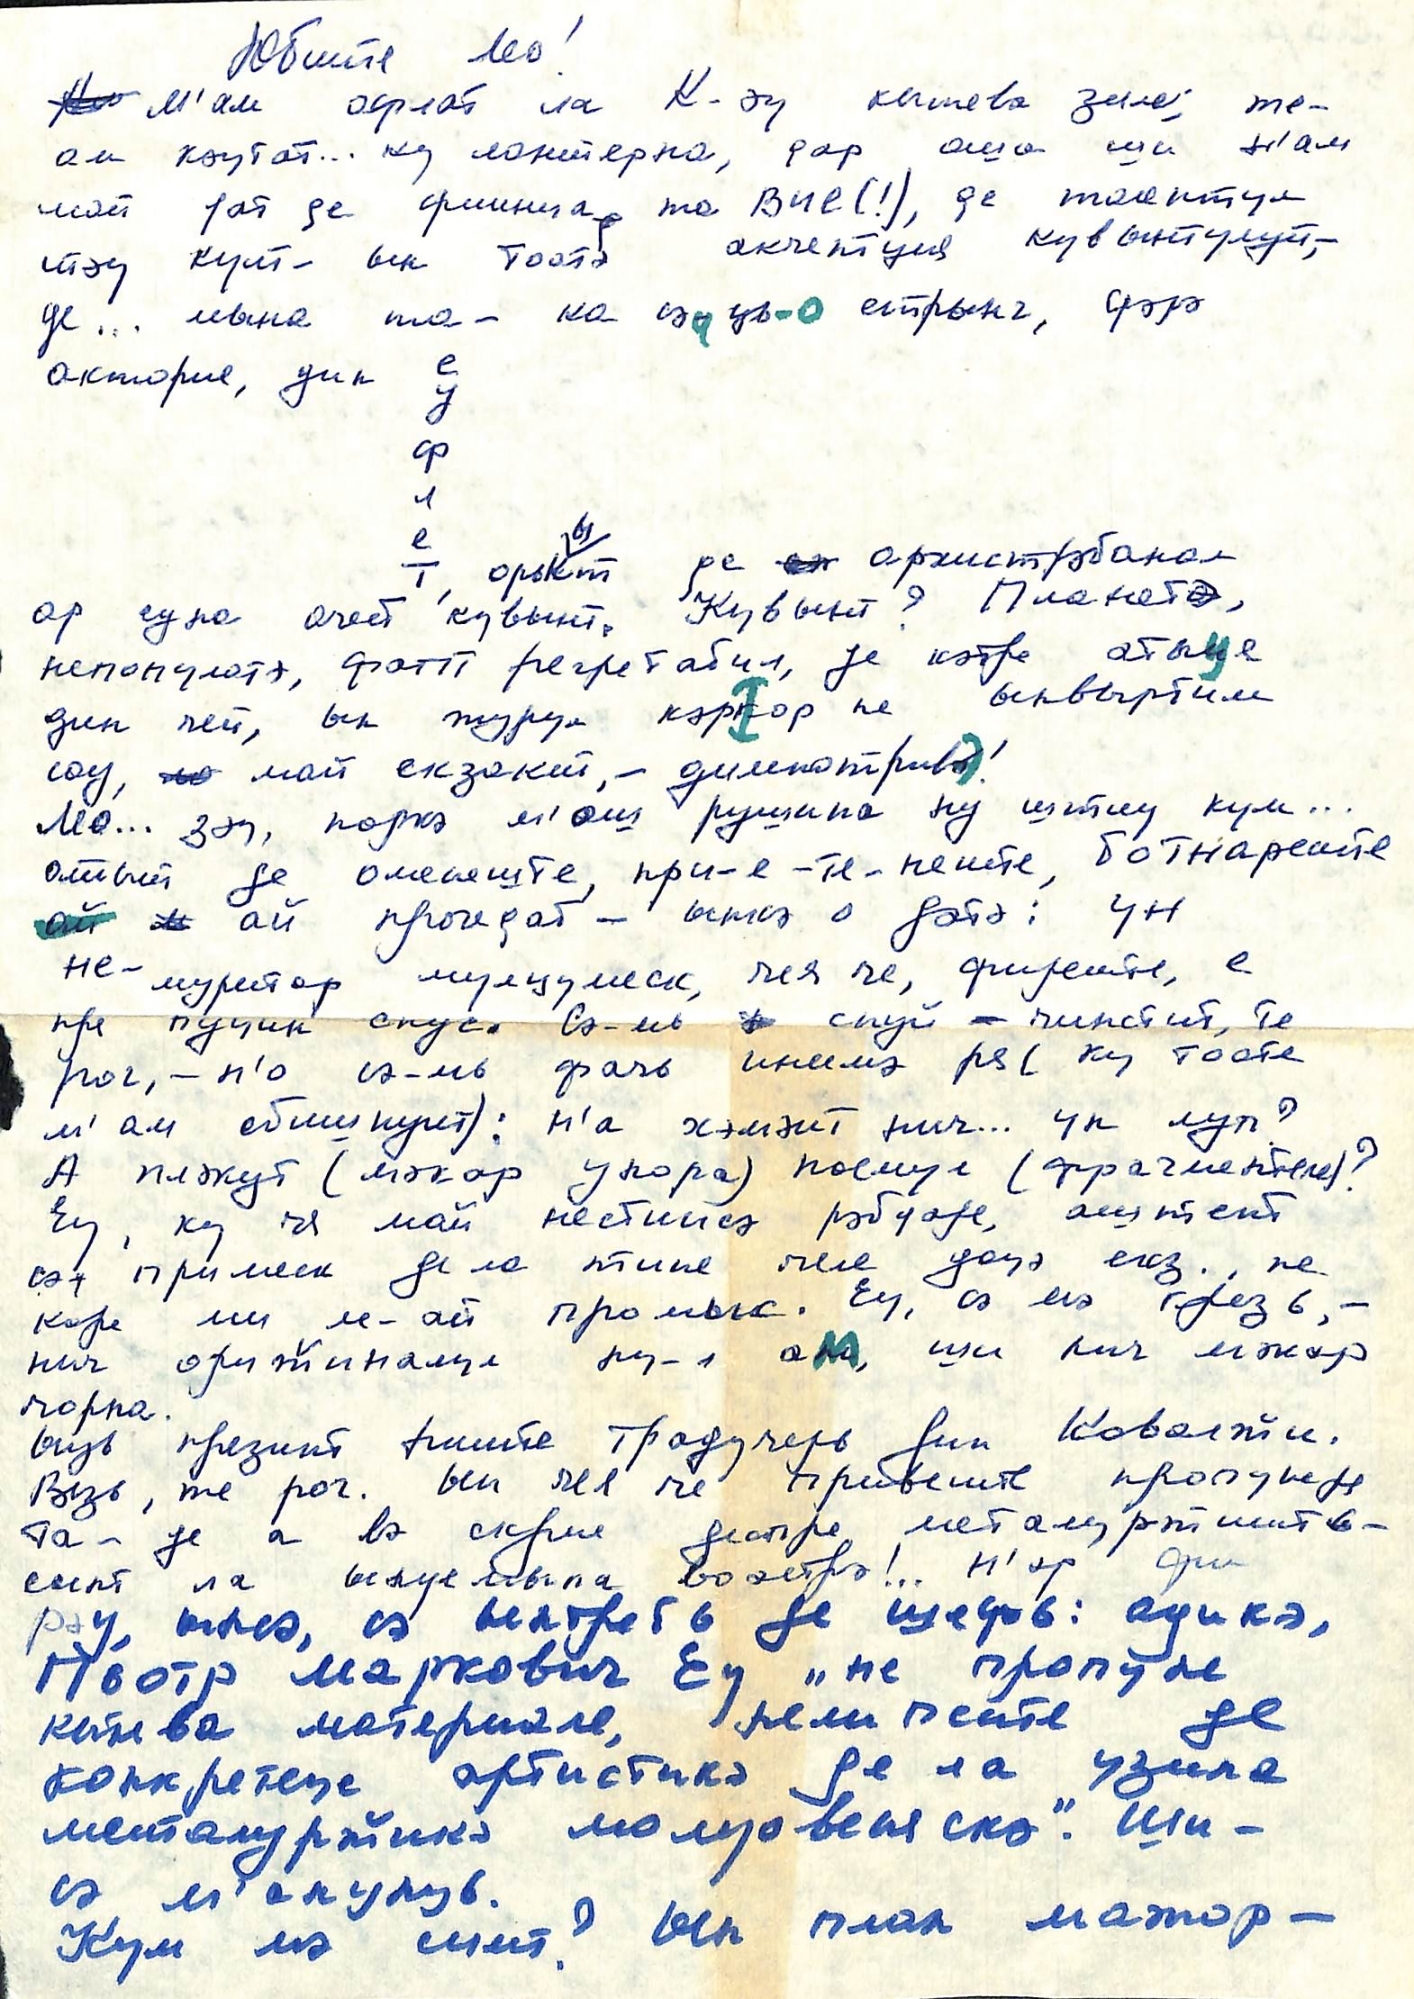 Юбите Лео!
М'ам афлат ла К-эу кытева зиле, те-
ам кэутат... ку лантерна, дар аша ши н'ам
май дат де фиинца та ВИЕ(!), де талентул
тэу култ - ын тоатэ акчепция кувынтулуй, -
де... мына та - ка сэ ць-о стрынг, фэрэ
актори е, дин
е
у
ф
л
е
т, орькыт де архистрэбанал
ар суна ачест кувынт. Кувынт? Планатэ,
непопулатэ, фапт регретабил, де кэтре атыця
дин чей, ын журул кэрора не ынвыртим
сау, май екзакт, - димпотривэ!
Лео... зэу, паркэ м'аш рушина ну штиу кум...
атыт де оменеште, при-е-те-неште, Ботнарените
ай прочедат - ынкэ о датэ: Ун
не-муритор мулцумеск, чея че, фиреште, е
пря пуцин спус. Сэ-мь спуй - чинстит, те
рог, - н'о сэ-мь фачь инимэ ря (ку тоате
м'ам обишнуит): н'а хэмэит нич... ун луп?
А плэкут (мэкар унора) поемул (фрагментеле)?
Еу, ку чя май нестинсэ рэбдаре, аштепт
сэ примеск де ла тине челе доуэ екз., пе
каре ми ле-ай промис. Еу, сэ мэ крезь, -
нич оружиналул ну-л ам, ши нич мэкар
чорна.
Ыць презинт традучерь дин Ковалжи.
Везь, те рог. Ын чея че привеште пропунеря
та - де а вэ скрие деспре металуржишть -
сынт ла ындемына воастрэ!.. Н'ар фи
рэу, ынсэ, сэ ынтребь де шефь: адикэ,
Пьотр Маркович Еу „не пропуне
кытева материале, нелипсите де
конкретеце артистикэ де ла узина
металуржикэ молдовеняскэ". Ши -
сэ м'анунць.
Кум мэ симт? Ын план мажор -